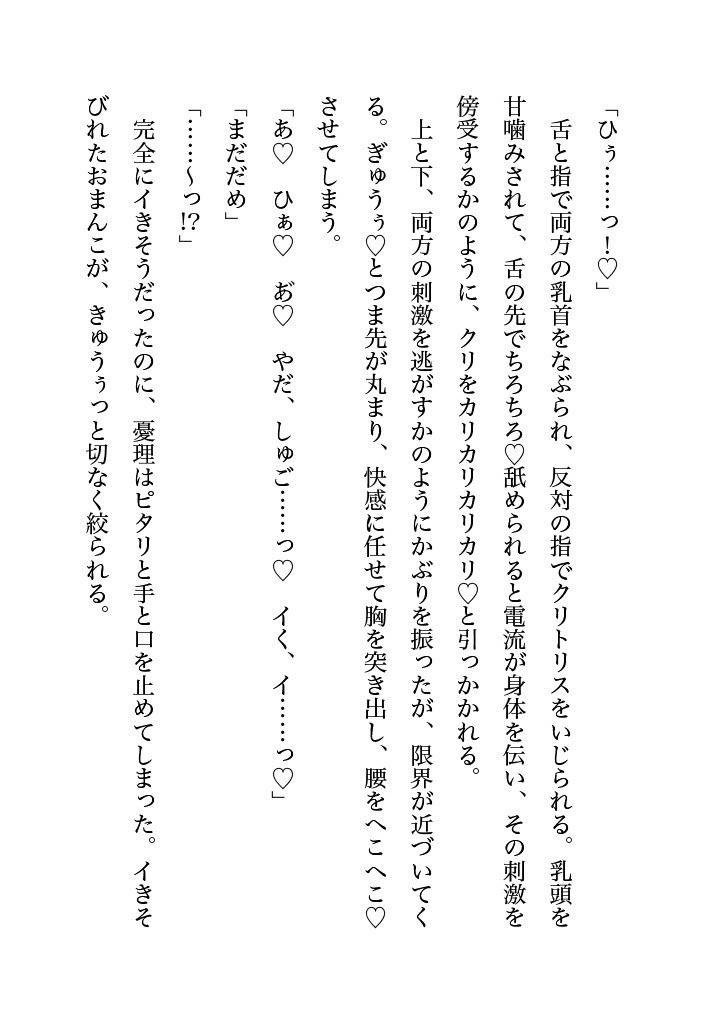 「ひぅ……っ！♡」
　舌と指で両方の乳首をなぶられ、反対の指でクリトリスをいじられる。乳頭を
甘噛みされて、舌の先でちろちろ♡舐められると電流が身体を伝い、その刺激を
傍受するかのように、クリをカリカリカリカリ♡と引っかかれる。
　上と下、両方の刺激を逃がすかのようにかぶりを振ったが、限界が近づいてく
る。ぎゅうぅ♡とつま先が丸まり、快感に任せて胸を突き出し、腰をへこへこ♡
させてしまう。
「あ♡　ひぁ♡　あ゙♡　やだ、しゅご……っ♡　イく、イ……っ♡」
「まだだめ」
「……～っ!?」
　完全にイきそうだったのに、憂理はピタリと手と口を止めてしまった。イきそ
びれたおまんこが、きゅうぅっと切なく絞られる。